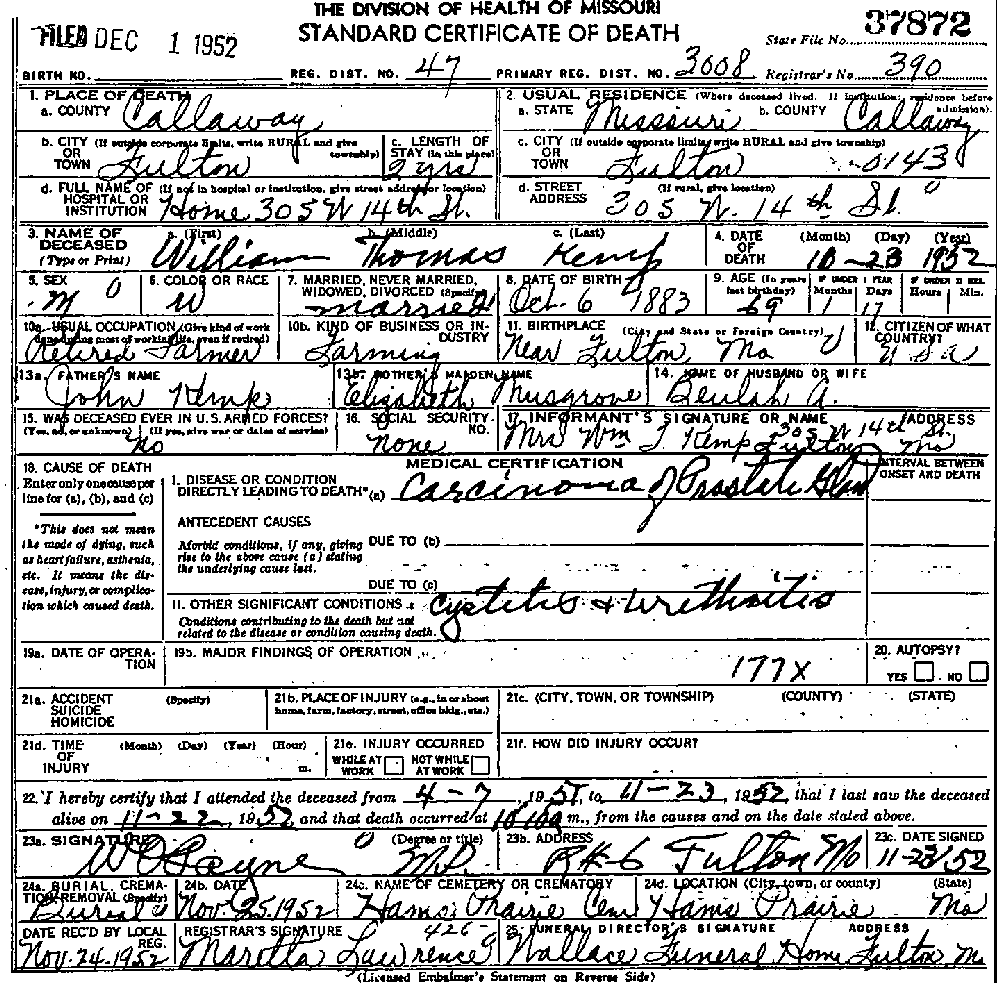 THE DIVISION OF HEALTH OF MISSOURI
FILED DEC 1 1952 STANDARD CERTIFICATE OF DEATH State File No. 37872
BIRTH NO. REG. DIST. NO. 47 PRIMARY REG. DIST. NO. 3008 Registrar's No. 390
1. PLACE OF DEATH
a. COUNTY Callaway
2. USUAL RESIDENCE (Where deceased lived. If institution: residence before admission).
a. STATE Missouri b. COUNTY Callaway
b. CITY (If outside corporate limits, write RURAL and give township) OR TOWN Fulton
c. LENGTH OF STAY (in this place) 2 yrs
c. CITY (If outside corporate limits, write RURAL and give township) OR TOWN Fulton 0143
d. FULL NAME OF (If not in hospital or institution, give street address or location) HOSPITAL OR INSTITUTION Home 305 W 14th St.
d. STREET ADDRESS (If rural, give location) 305 W. 14th St. 0
3. NAME OF DECEASED (Type or Print) a. (First) b. (Middle) c. (Last)
William Thomas Kemp
4. DATE OF DEATH (Month) (Day) (Year)
10-23 1952
5. SEX M 0
6. COLOR OR RACE W
7. MARRIED, NEVER MARRIED, WIDOWED, DIVORCED (Specify) married
8. DATE OF BIRTH Oct. 6 1883
9. AGE (In years last birthday) 69 IF UNDER 1 YEAR Months 1 Days 17 IF UNDER 24 HRS. Hours Min.
10a. USUAL OCCUPATION (Give kind of work done during most of working life, even if retired) Retired Farmer
10b. KIND OF BUSINESS OR INDUSTRY Farming
11. BIRTHPLACE (City and State or Foreign Country) Near Fulton, Mo
12. CITIZEN OF WHAT COUNTRY? U S a
13a. FATHER'S NAME John Kemp
13b. MOTHER'S MAIDEN NAME Elizabeth Musgrove
14. NAME OF HUSBAND OR WIFE Beulah A.
15. WAS DECEASED EVER IN U.S. ARMED FORCES? (Yes, no, or unknown) (If yes, give war or dates of service) No
16. SOCIAL SECURITY NO. None
17. INFORMANT'S SIGNATURE OR NAME ADDRESS
Mrs Wm T. Kemp 305 W 14th St. Fulton Mo
18. CAUSE OF DEATH
Enter only one cause per line for (a), (b), and (c)
MEDICAL CERTIFICATION
INTERVAL BETWEEN ONSET AND DEATH
I. DISEASE OR CONDITION DIRECTLY LEADING TO DEATH* (a) Carcinoma of Prostate Gland
*This does not mean the mode of dying, such as heart failure, asthenia, etc. It means the disease, injury, or complication which caused death.
ANTECEDENT CAUSES
Morbid conditions, if any, giving rise to the above cause (a) stating the underlying cause last.
DUE TO (b)
DUE TO (c)
II. OTHER SIGNIFICANT CONDITIONS Cystitis & Urethritis
Conditions contributing to the death but not related to the disease or condition causing death.
19a. DATE OF OPERATION
19b. MAJOR FINDINGS OF OPERATION
177X
20. AUTOPSY?
YES NO
21a. ACCIDENT SUICIDE HOMICIDE (Specify)
21b. PLACE OF INJURY (e.g., in or about home, farm, factory, street, office bldg., etc.)
21c. (CITY, TOWN, OR TOWNSHIP) (COUNTY) (STATE)
21d. TIME OF INJURY (Month) (Day) (Year) (Hour) m.
21e. INJURY OCCURRED
WHILE AT WORK NOT WHILE AT WORK
21f. HOW DID INJURY OCCUR?
22. I hereby certify that I attended the deceased from 4-7, 1951, to 11-23, 1952, that I last saw the deceased
alive on 11-22, 1952 and that death occurred at m., from the causes and on the date stated above.
23a. SIGNATURE (Degree or title)
Payne M.D.
23b. ADDRESS R#6 Fulton Mo
23c. DATE SIGNED 11-23/52
24a. BURIAL, CREMATION, REMOVAL (Specify) Burial
24b. DATE Nov. 25, 1952
24c. NAME OF CEMETERY OR CREMATORY Hams Prairie Cem
24d. LOCATION (City, town, or county) (State) Hams Prairie Mo
DATE REC'D BY LOCAL REG. Nov. 24-1952
REGISTRAR'S SIGNATURE 426 Maretta Lawrence
25. FUNERAL DIRECTOR'S SIGNATURE ADDRESS
Wallace Funeral Home Fulton Mo
(Licensed Embalmer's Statement on Reverse Side)